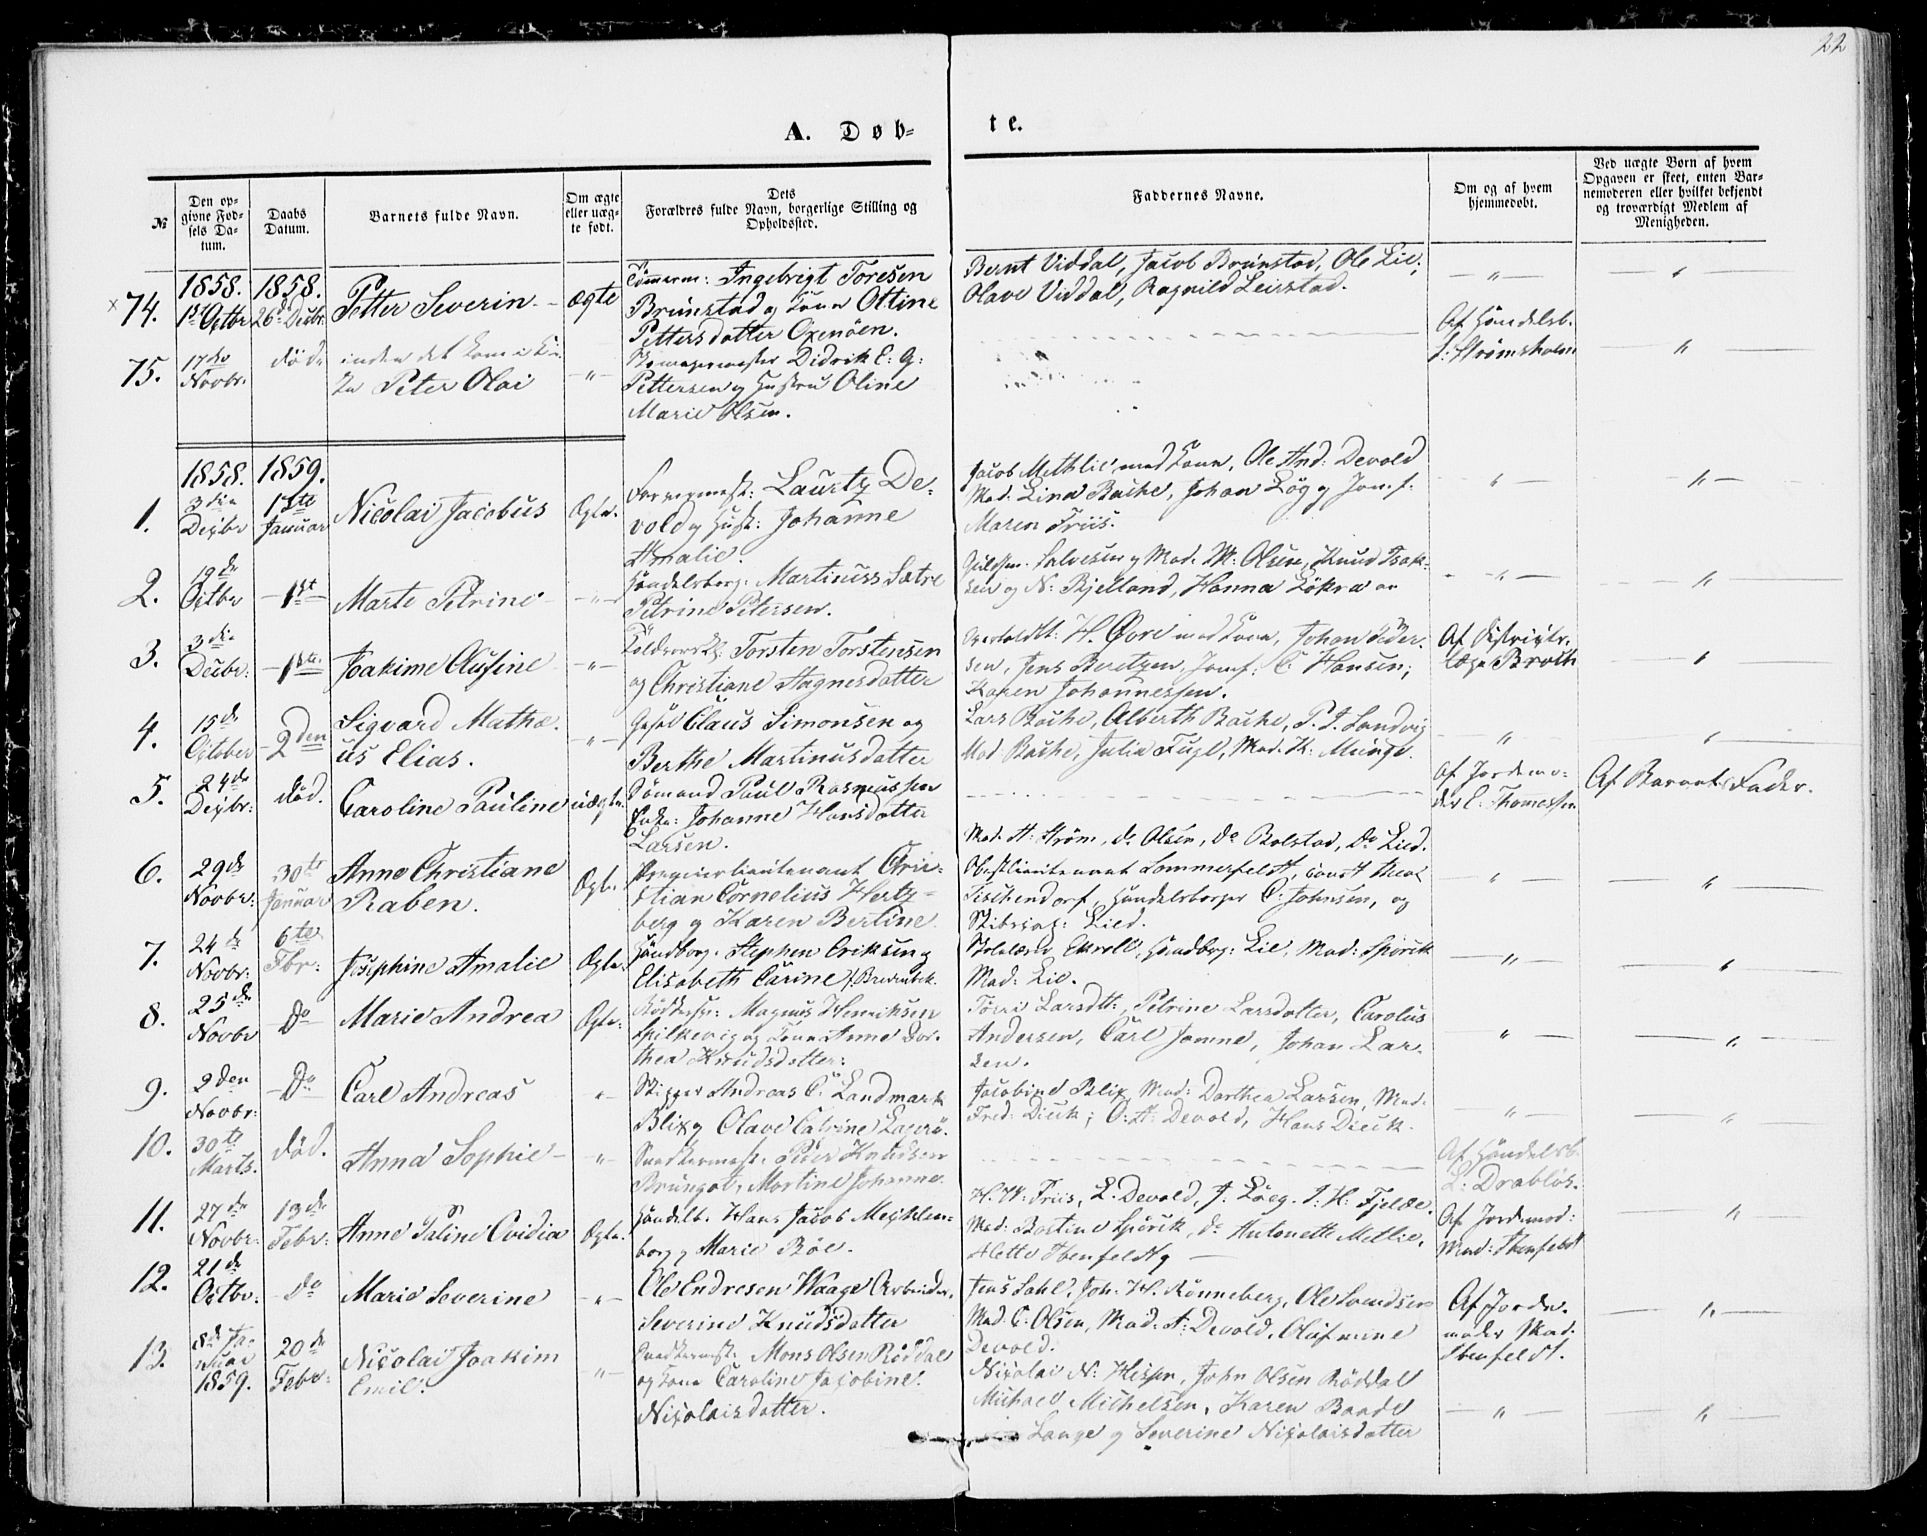 22
A. Døb-
te.
№
Den op-
givne Fød-
sels Da-
tum.
Daabs
Datum.
Barnets fulde Navn.
Om ægte
eller uæg-
te født.
Dets
Forældres fulde Navn, borgerlige Stilling og
Opholdssted.
Faddernes Navne.
Om og af hvem
hjemmedøbt.
Ved uægte Børn af hvem
Opgaven er skeet, enten Bar-
nemoderen eller hvilket bekjendt
og troværdigt Medlem af
Menigheden.
× 74.
1858.
1ste Octbr
1858.
26de Decbr.
Petter Severin
Ægte
Tømmerm: Ingebrigt Toresen
Brunstad og Kone Oltine
Pettersdatter Oxenøen.
Bernt Viddal, Jacob Brunstad, Ole Lie,
Olave Viddal, Ragnild Leirstad.
— " —
"
75.
17de
Novbr.
død
inden det kom i
Peter Olai
— " —
Didrik E: G:
Pettersen og Hustru Oline
Marie Olsen.
Af Handelsb.
Strømsholm
"
1.
1858.
3die
Decbr
1859.
1ste
Januar
Nicolai Jacobus
Ægte.
Laurtz De-
vold og Hust: Johanne
Amalie.
Jacob Methlie med Kone, Ole And: Devold
Mad: Lina Bache, Johan Løg og Jomf:
Maren Friis.
"
" —
2.
19de
Octbr
— 1ste
Marte Petrine
— " —
Handelsborg: Martinuss Sætre
Petrine Petersen.
Guldsm. Salvesen og Mad. M: Olsen, Knud Isak-
sen og N: Bjelland, Hanna Løkra
- " —
"
3.
3die
Decbr:
— 1ste
Joakime Olufine
— " —
Torsten Torstensen
og Christiane Magnesdatter
H. Øvre med Kone, Johan Peder-
sen, Jens Beretzen, Jomf: C Hansen,
Karen Johannessen.
Af Districts-
læge Broth
"
4.
15de
October
2den
Sigvard Mathæ-
us Elias.
— " —
Claus Simonsen og
Berthe Martinusdatter
Lars Bache, Alberth Bache, P. J. Sandvig
Mad Bache, Julia Fugl, Mad. K: Munge.
"
"
5.
24de
Decbr:
død.
Caroline Pauline
uægte.
Sømand Paul Rasmussen
Johanne Hansdatter
Larsen.
Af Jordemo-
der E: Thomassen
Af Barnets Fader.
6.
29de
Novbr:
30te
Januar
Anne Christiane
Raben.
Ægte.
Premierlieutenant Chri-
stian Cornelius Hertz-
berg og Karen Bertine
Mad. A: Strøm, do Olsen, do Bolstad, do Lied.
Obestlieutenant Sommerfeldt, cand theol
Tischendorf, Handelsborger C: Johnsen, og
Lied.
"
"
7.
24de
Novbr:
6te
Fbr:
Josephine Amalie
Ægte.
Handborg. Stephen Eriksen og
Elisabeth Carine f. Brevenbek.
Ekroll, Handborg: Lie, Mad: Spørck
Mad: Lie.
— " —
"
8.
25de
Novbr
Do
Marie Andrea
Ægte.
Magnus Henriksen
Spilkevig og Kone Anne Dor-
thea Knudsdatter.
Larsdtt:, Petrine Larsdatter, Carolus
Andersen, Carl Jamne, Johan Lar-
sen.
"
"
9.
2den
Novbr:
Do
Carl Andreas
"
Skipper Andreas C: Landmark
Blix og Olave Catrine
Jacobine Blix, Mad: Dorthea Larsen, Mad.
Fred: Dieck, O: A: Devold, Hans Dieck.
"
"
10.
30te
Marts.
død.
Anna Sophie
"
Peter Knudsen
Brungot, Martine Johanne.
Af Handelsb.
L: Drabløs.
11.
27de
Novbr:
13de
Febr:
Anne Paline Ovidia
Ægte.
Handelb. Hans Jacob Mechlen-
borg og Marie Bøe.
H. M: Friis, L. Devold, J. Løeg. J. H: Fjelde,
Mad: Bastine Spørck, do Antonette Metlie,
Mette Ibenfeldt
Af Jordemod:
Mad: Ibenfeldt
"
12.
21de
Octbr.
Do
Marie Severine
"
Ole Endresen Waage Arbeider,
Severine Knudsdatter
Jens Dahl, Joh. H. Rønneberg, Ole Svendsen
Mad. C: Olsen, Mad. A: Devold, Olufmine
Devold.
Af Jorde-
moder Mad.
Ibenfeldt.
"
13.
8de Ja-
nuar
1859.
20de
Febr:
Nicolai Joakim
Emil.
"
Mons Olsen Røddal
og Kone Caroline Jacobine
Nicolaisdatter.
Nicolai N: Hissen, John Olsen Røddal
Michael Michelsen, Karen Baade
Lange og Severine Nicolaisdatter
"
"